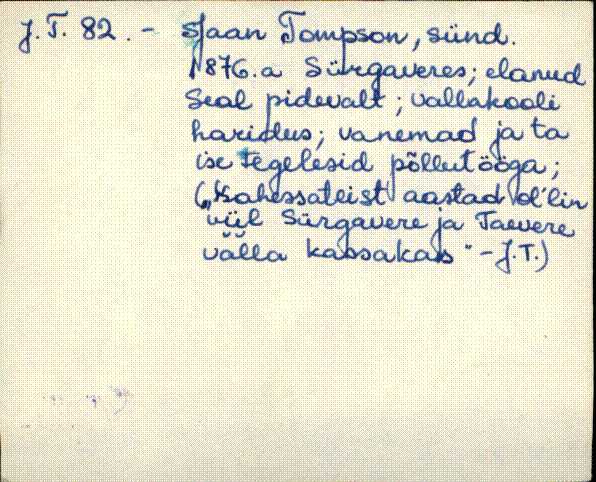 J. T. 82. - Jaan Tompson, sünd.
1876.a Sürgaveres; elanud
seal pidevalt; vallakooli
haridus; vanemad ja ta
ise tegelesid põllutööga;
("kahessateist aastad ol'lin
viil Sürgavere ja Taevere
valla kassakas" - J.T.)